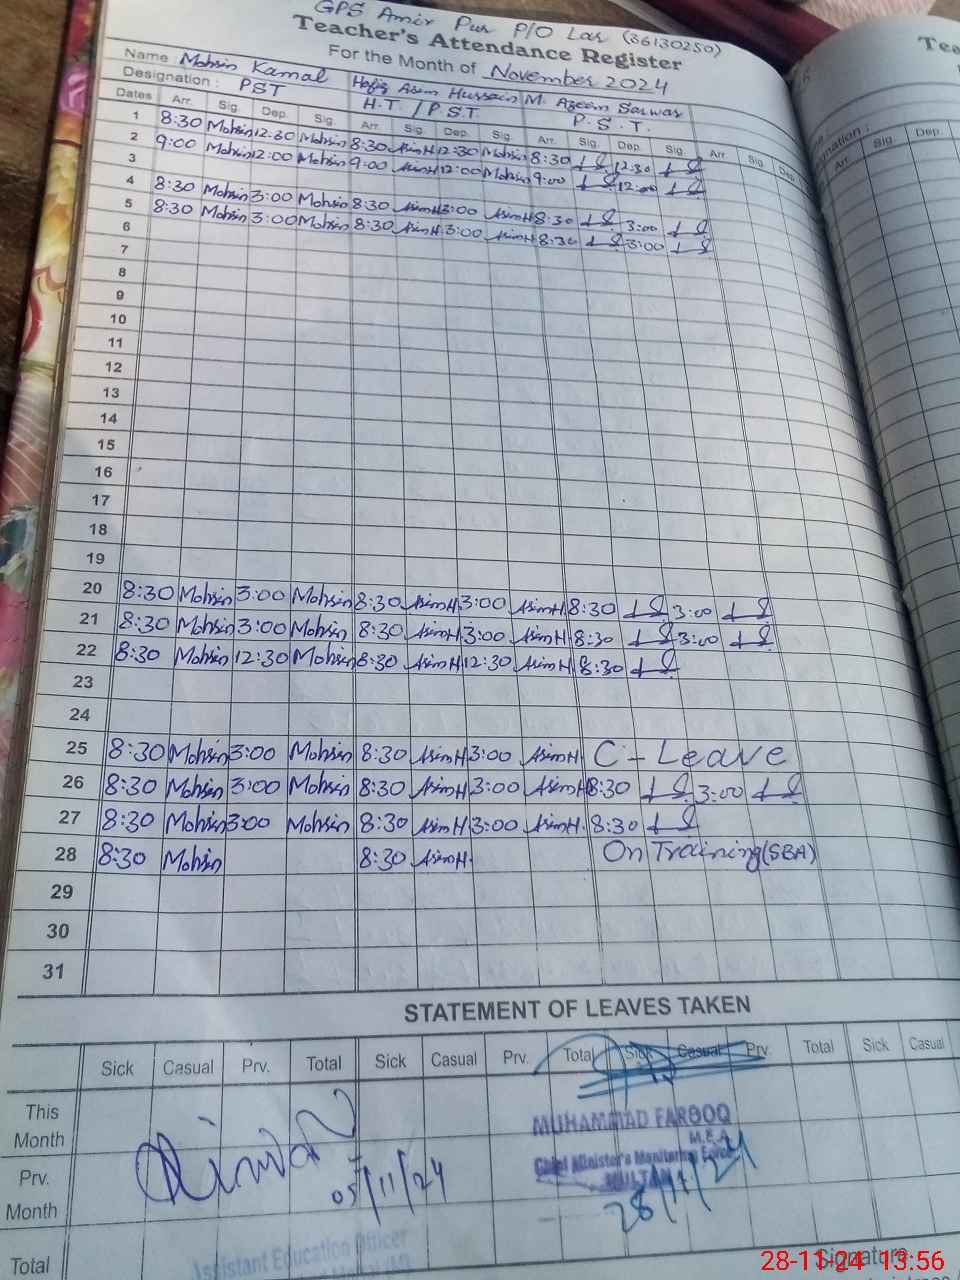 GPS Amir Pur P/O Lar (36130250)
Teacher's Attendance Register
For the Month of November 2024
Name Mohsin Kamal Hafiz Asim Hussain M. Azeem Sarwar
Designation : PST H.T. / P.S.T. P.S.T.
Dates Arr. Sig. Dep. Sig. Arr. Sig. Dep. Sig. Arr. Sig. Dep. Sig. Arr. Sig. Dep.
1 8:30 Mohsin 12:30 Mohsin 8:30 Asim H 12:30 Mohsin 8:30 12:30
2 9:00 Mohsin 12:00 Mohsin 9:00 Asim H 12:00 Mohsin 9:00 12:00
3
4 8:30 Mohsin 3:00 Mohsin 8:30 Asim H 3:00 Asim H 8:30 3:00
5 8:30 Mohsin 3:00 Mohsin 8:30 Asim H 3:00 Asim H 8:30 3:00
6
7
8
9
10
11
12
13
14
15
16
17
18
19
20 8:30 Mohsin 3:00 Mohsin 8:30 Asim H 3:00 Asim H 8:30 3:00
21 8:30 Mohsin 3:00 Mohsin 8:30 Asim H 3:00 Asim H 8:30 3:00
22 8:30 Mohsin 12:30 Mohsin 8:30 Asim H 12:30 Asim H 8:30
23
24
25 8:30 Mohsin 3:00 Mohsin 8:30 Asim H 3:00 Asim H C-Leave
26 8:30 Mohsin 3:00 Mohsin 8:30 Asim H 3:00 Asim H 8:30 3:00
27 8:30 Mohsin 3:00 Mohsin 8:30 Asim H 3:00 Asim H. 8:30
28 8:30 Mohsin 8:30 Asim H. On Training (SBA)
29
30
31
STATEMENT OF LEAVES TAKEN
Sick Casual Prv. Total Sick Casual Prv. Total Sick Casual Prv. Total Sick Casual
This Month
Prv. Month
Total
05/11/24
Assistant Education Officer
MUHAMMAD FAROOQ
M.E.A
Chief Minister's Monitoring Force
MULTAN
28/11/24
Signature
28-11-24 13:56
Arr. Sig. Dep.